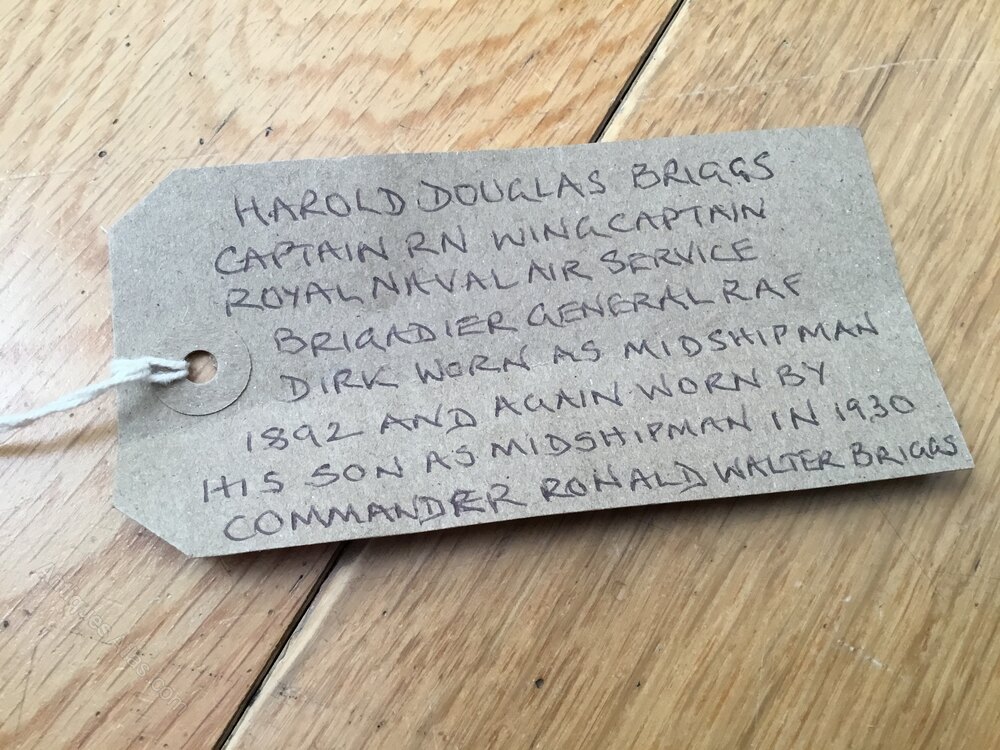 HAROLD DOUGLAS BRIGGS
CAPTAIN RN WING CAPTAIN
ROYAL NAVAL AIR SERVICE
BRIGADIER GENERAL RAF
DIRK WORN AS MIDSHIPMAN
1892 AND AGAIN WORN BY
HIS SON AS MIDSHIPMAN IN 1930
COMMANDER RONALD WALTER BRIGGS
Antiques Atlas.com